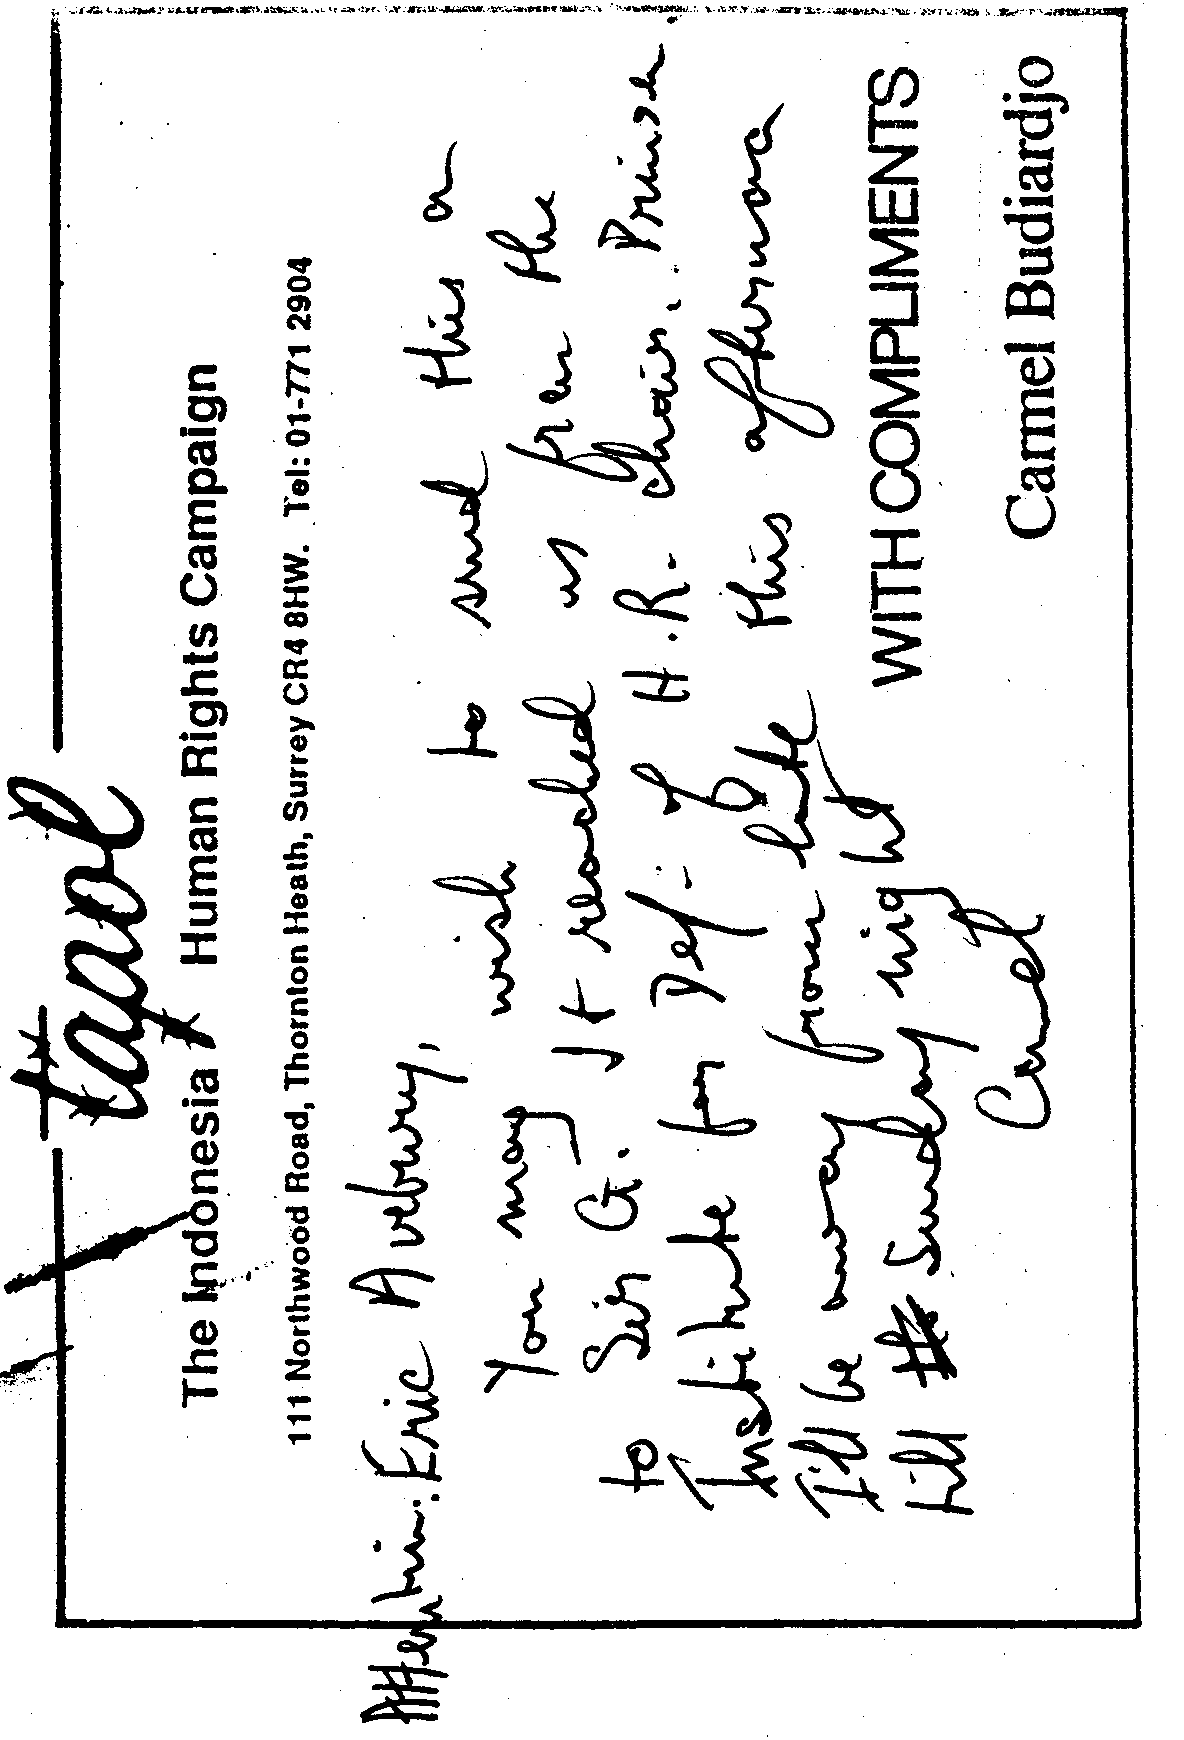 tapol
The Indonesia Human Rights Campaign
111 Northwood Road, Thornton Heath, Surrey CR4 8HW. Tel: 01-771 2904
Attention: Eric Avebury,
You may wish to send this on
to Sir G. It reached us from the
Institute for Def. of H.R. Chair. Prinsen
I'll be away from late this afternoon
till Sunday night
Carmel
WITH COMPLIMENTS
Carmel Budiardjo